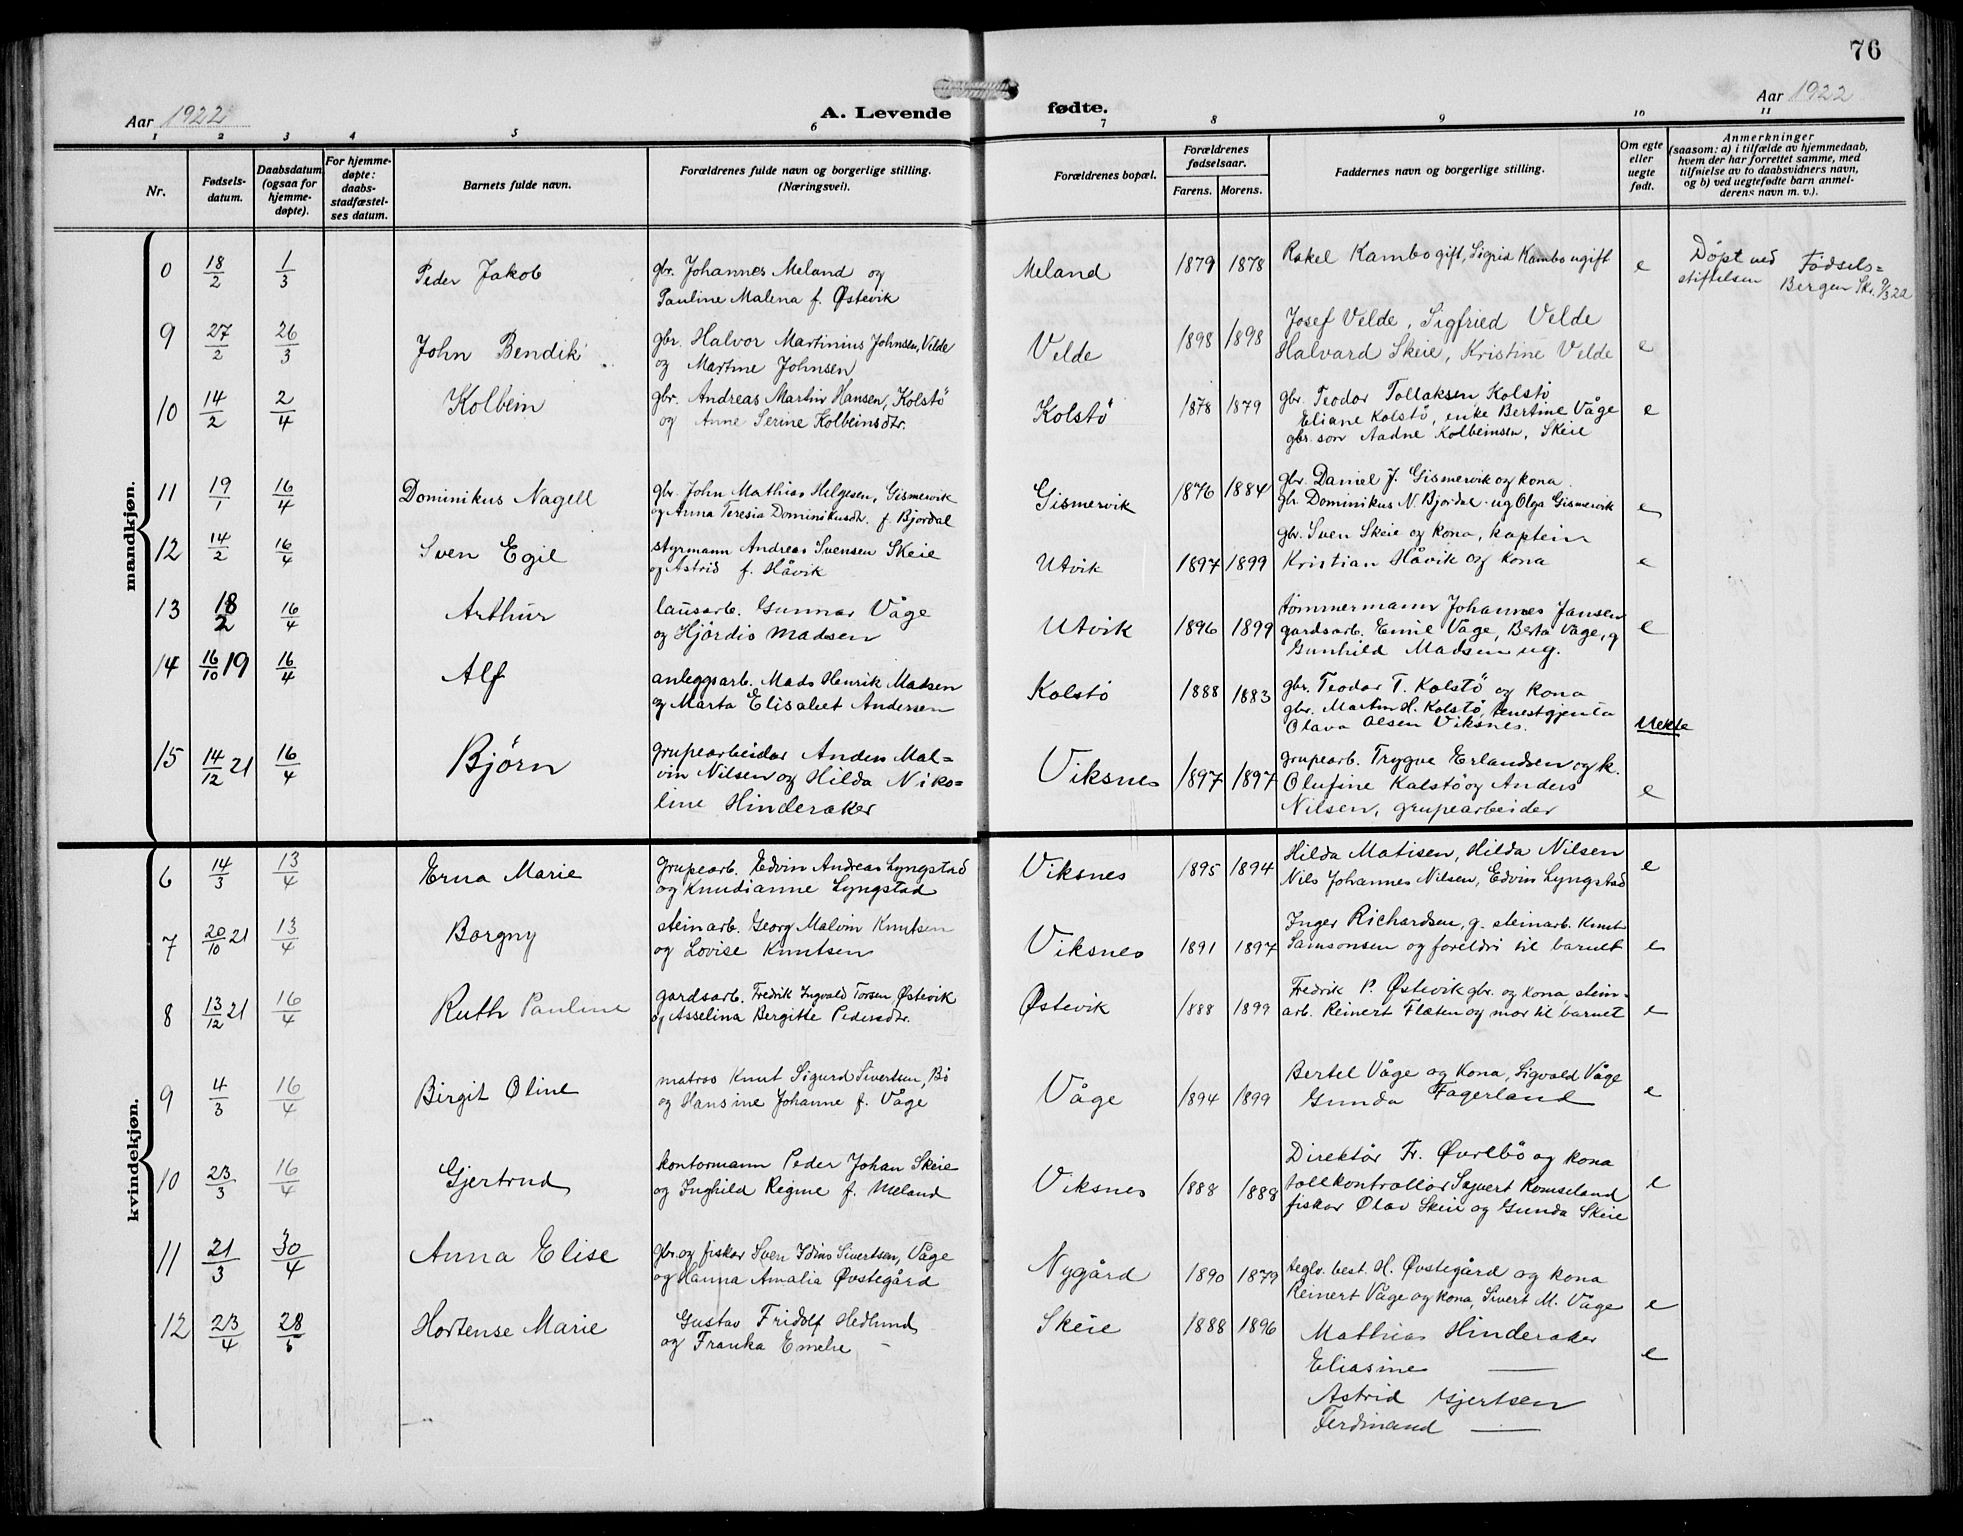 76
Aar 1922
A. Levende fødte.
Aar 1922
1 2 3 4 5 6 7 8 9 10 11
Nr.
Fødsels-
datum.
Daabsdatum
(ogsaa for
hjemme-
døpte).
For hjemme-
døpte:
daabs-
stadfæstel-
ses datum.
Barnets fulde navn.
Forældrenes fulde navn og borgerlige stilling.
(Næringsvei).
Forældrenes bopæl.
Forældrenes
fødselsaar.
Farens. Morens.
Faddernes navn og borgerlige stilling.
Om egte
eller
uegte
født.
Anmerkninger
(saasom: a) i tilfælde av hjemmedaab,
hvem der har forrettet samme, med
tilføielse av to daabsvidners navn,
og b) ved uegtefødte barn anmel-
derens navn m. v.).
mandkjøn.
0 18/2 1/3 Peder Jakob
gbr. Johannes Meland og
Pauline Malena f. Østevik
Meland 1879 1878
Rakel Kambo gift, Sigrid Kambo ugift
e
Döpt ved Fødsels=
stiftelsen Bergen Skr. 9/3 22
9 27/2 26/3 John Bendik
gbr. Halvor Martinius Johnsen, Velde
og Martine Johnsen
Velde 1898 1898
Josef Velde, Sigfried Velde
Halvard Skeie, Kristine Velde
e
10 14/2 2/4 Kolbein
gbr. Andreas Martin Hansen, Kolstö
og Anne Serine Kolbeinsdtr.
Kolstö 1878 1879
gbr. Teodor Tollaksen Kolstö
Eliane Kolstö, enke Bertine Våge
gbr. son Aadne Kolbeinsen, Skeie
e
11 19/1 16/4 Dominikus Nagell
gbr. John Mathias Helgesen, Gismervik
og Anna Teresia Dominikusdtr. f. Bjordal
Gismervik 1876 1884
gbr. Daniel J. Gismervik og kona
gbr. Dominikus N. Bjordal - ug Olga Gismervik
e
12 14/2 16/4 Sven Egil
styrmann Andreas Svensen Skeie
og Astrid f. Håvik
Utvik 1897 1899
gbr. Sven Skeie og kona, kaptein
Kristian Håvik og kona
e
13 18/2 16/4 Arthur
lausarb. Gunnar Våge
og Hjördis Madsen
Utvik 1896 1899
tömmermann Johannes Jansen
gardsarb. Emil Våge, Berta Våge, g
Gunhild Madsen ug.
e
14 16/10 19 16/4 Alf
anleggsarb. Mads Henrik Madsen
og Marta Elisabet Andersen
Kolstö 1888 1883
gbr. Teodor T. Kolstö og kona
gbr. Martin H. Kolstö, tenestgjenta
Olava Olsen Viksnes.
Uekte
15 14/12 21 16/4 Björn
grupearbeidar Anders Mal=
vin Nilsen og Hilda Niko=
line Hinderaker
Viksnes 1897 1897
grupearb. Trygve Erlandsen og k.
Olufine Kalstö og Anders
Nilsen, grupearbeider
e
kvindekjøn.
6 14/3 13/4 Erna Marie
grupearb. Edvin Andreas Lyngstad
og Knudianne Lyngstad
Viksnes 1895 1894
Hilda Matisen, Hilda Nilsen
Nils Johannes Nilsen, Edvin Lyngstad
e
7 20/10 21 13/4 Borgny
steinarb. Georg Malvin Knutsen
og Lovise Knutsen
Viksnes 1891 1897
Inger Richardsen, g. steinarb. Knut
Samsonsen og foreldri til barnet
e
8 13/12 21 16/4 Ruth Pauline
gardsarb. Fredrik Ingvald Torsen, Østevik
og Asselina Bergitte Pedersdtr.
Østevik 1888 1899
Fredrik P. Østevik gbr. og kona, stein-
arb. Reinert Flæten og mor til barnet
e
9 4/3 16/4 Birgit Oline
matros Knut Sigurd Sivertsen, Bö
og Hansine Johanne f. Våge
Våge 1894 1899
Bertel Våge og Kona, Sigvald Våge
Gunda Fagerland
e
10 23/3 16/4 Gjertrud
kontormann Peder Johan Skeie
og Inghild Regine f. Meland
Viksnes 1888 1888
Direktör Fr. Övrebö og kona
tollkontrollör Sigvert Romseland
fiskar Olav Skeie og Gunda Skeie
e
11 21/3 30/4 Anna Elise
gbr. og fiskar Sven Idius Sivertsen, Våge
og Hanna Amalia Øvstegård
Nygård 1890 1879
teglv. best. H. Øvstegård og kona
Reinert Våge og kona, Sivert M. Våge
e
12 23/4 28/5 Hortense Marie
Gustav Fridolf Hedlund
og Franka Emelie -
Skeie 1888 1896
Mathias Hinderaker
Eliasine —
Astrid Gjertsen
Ferdinand —
e